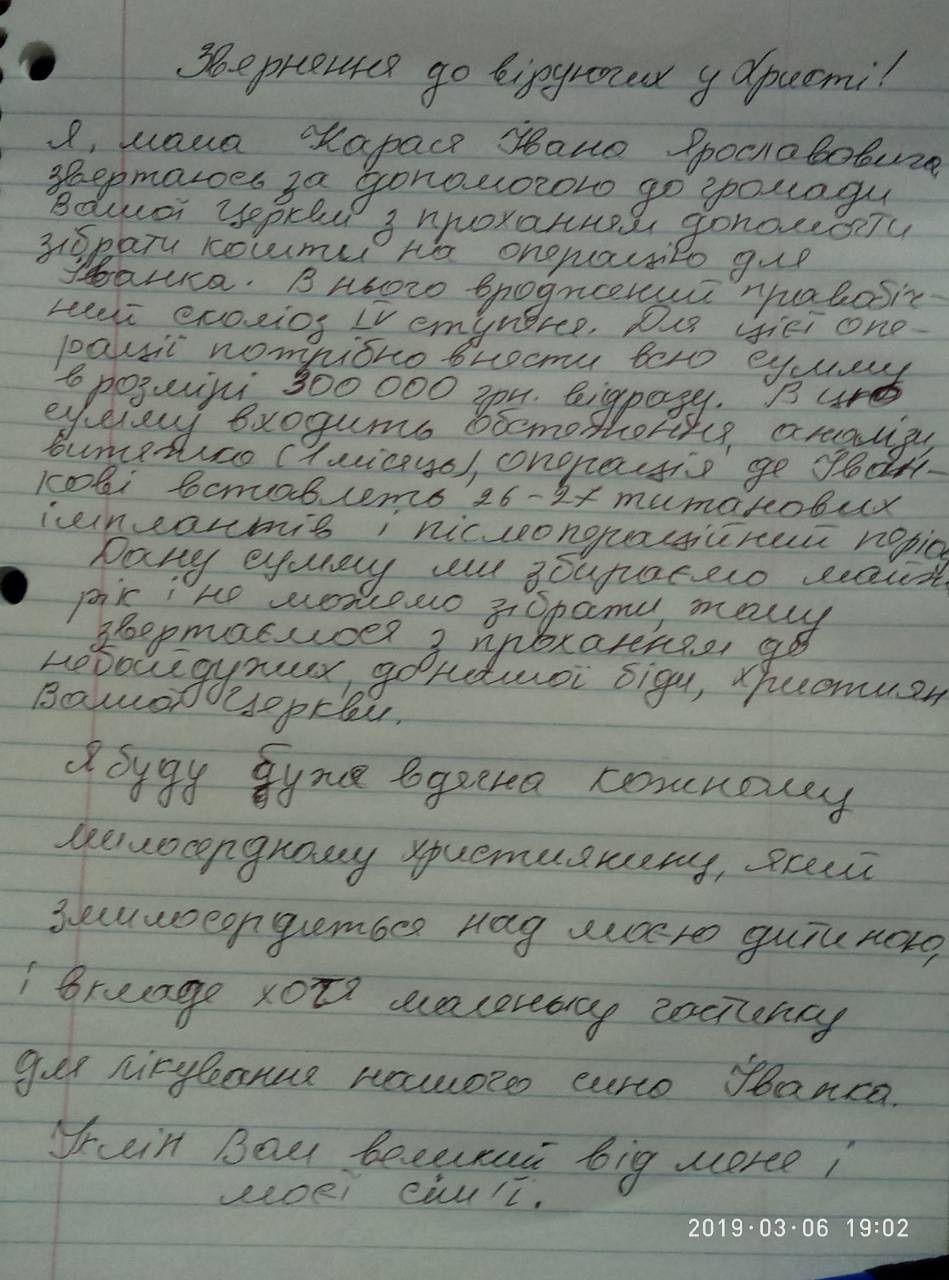 Звернення до віруючих у Христі!
Я, мама Карася Івана Ярославовича,
звертаюсь за допомогою до громади
Вашої Церкви з проханням допомогти
зібрати кошти на операцію для
Іванка. В нього вроджений правобіч-
ний сколіоз IV ступеня. Для цієї опе-
рації потрібно внести всю сумму
в розмірі 300 000 грн. відразу. В цю
сумму входить обстеження, аналізи,
витяжка (1 місяць), операція де Іван-
кові вставлять 26-27 титанових
імплантів і післяопераційний період
Дану сумму ми збираємо майж
рік і не можемо зібрати, тому
звертаємося з проханням до
небайдужих, до нашої біди, християн
Вашої Церкви.
Я буду дуже вдячна кожному
милосердному християнину, який
змилосердиться над моєю дитиною,
і вкладе хотя маленьку частинку
для лікування нашого сина Іванка.
Уклін Вам великий від мене і
моєї сім'ї.
2019·03·06 19:02